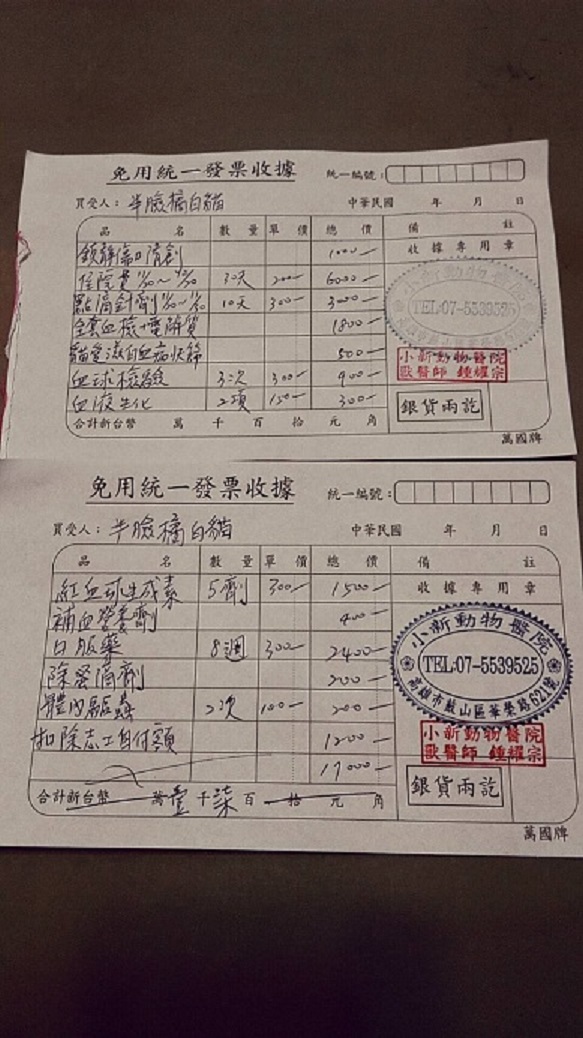 免用統一發票收據
統一編號:
買受人: 半臉橘白貓 中華民國 年 月 日
品 名 數 量 單 價 總 價 備 註
鎮靜傷口清創 1000 收據專用章
住院費 30天 200 6000
點滴針劑 10天 300 3000
全套血檢+電解質 1800
貓愛滋白血病快篩 500
血球檢驗 3次 300 900
血液生化 2項 150 300
小新動物醫院
TEL:07-5539525
高雄市鼓山區華榮路621號
小新動物醫院
獸醫師 鍾耀宗
銀貨兩訖
合計新台幣 萬 千 百 拾 元 角
萬國牌
免用統一發票收據
統一編號:
買受人: 半臉橘白貓 中華民國 年 月 日
品 名 數 量 單 價 總 價 備 註
紅血球生成素 5劑 300 1500 收據專用章
補血營養劑 400
口服藥 8週 300 2400
除蚤滴劑 200
體內驅蟲 2次 100 200
扣除志工自付額 1200
17000
小新動物醫院
TEL:07-5539525
高雄市鼓山區華榮路621號
小新動物醫院
獸醫師 鍾耀宗
銀貨兩訖
合計新台幣 萬壹 千柒 百 拾 元 角
萬國牌